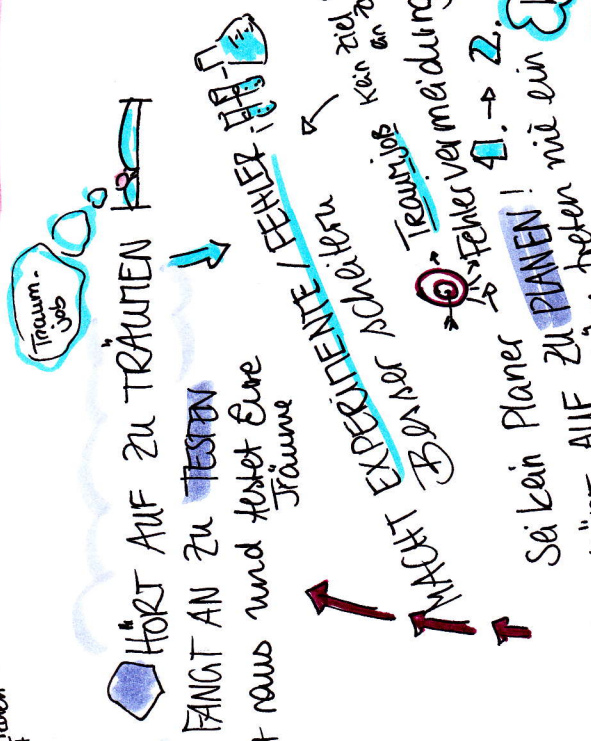 Traum-
job
HÖRT AUF ZU TRÄUMEN
FANGT AN ZU TESTEN
raus und testet Eure
Träume
MACHT EXPERIMENTE / FEHLER
Besser scheitern
Kein Ziel
an
Traumjob
Fehlervermeidung
1. → 2.
Sei kein Planer
AUF ZU PLANEN!
treten nie ein